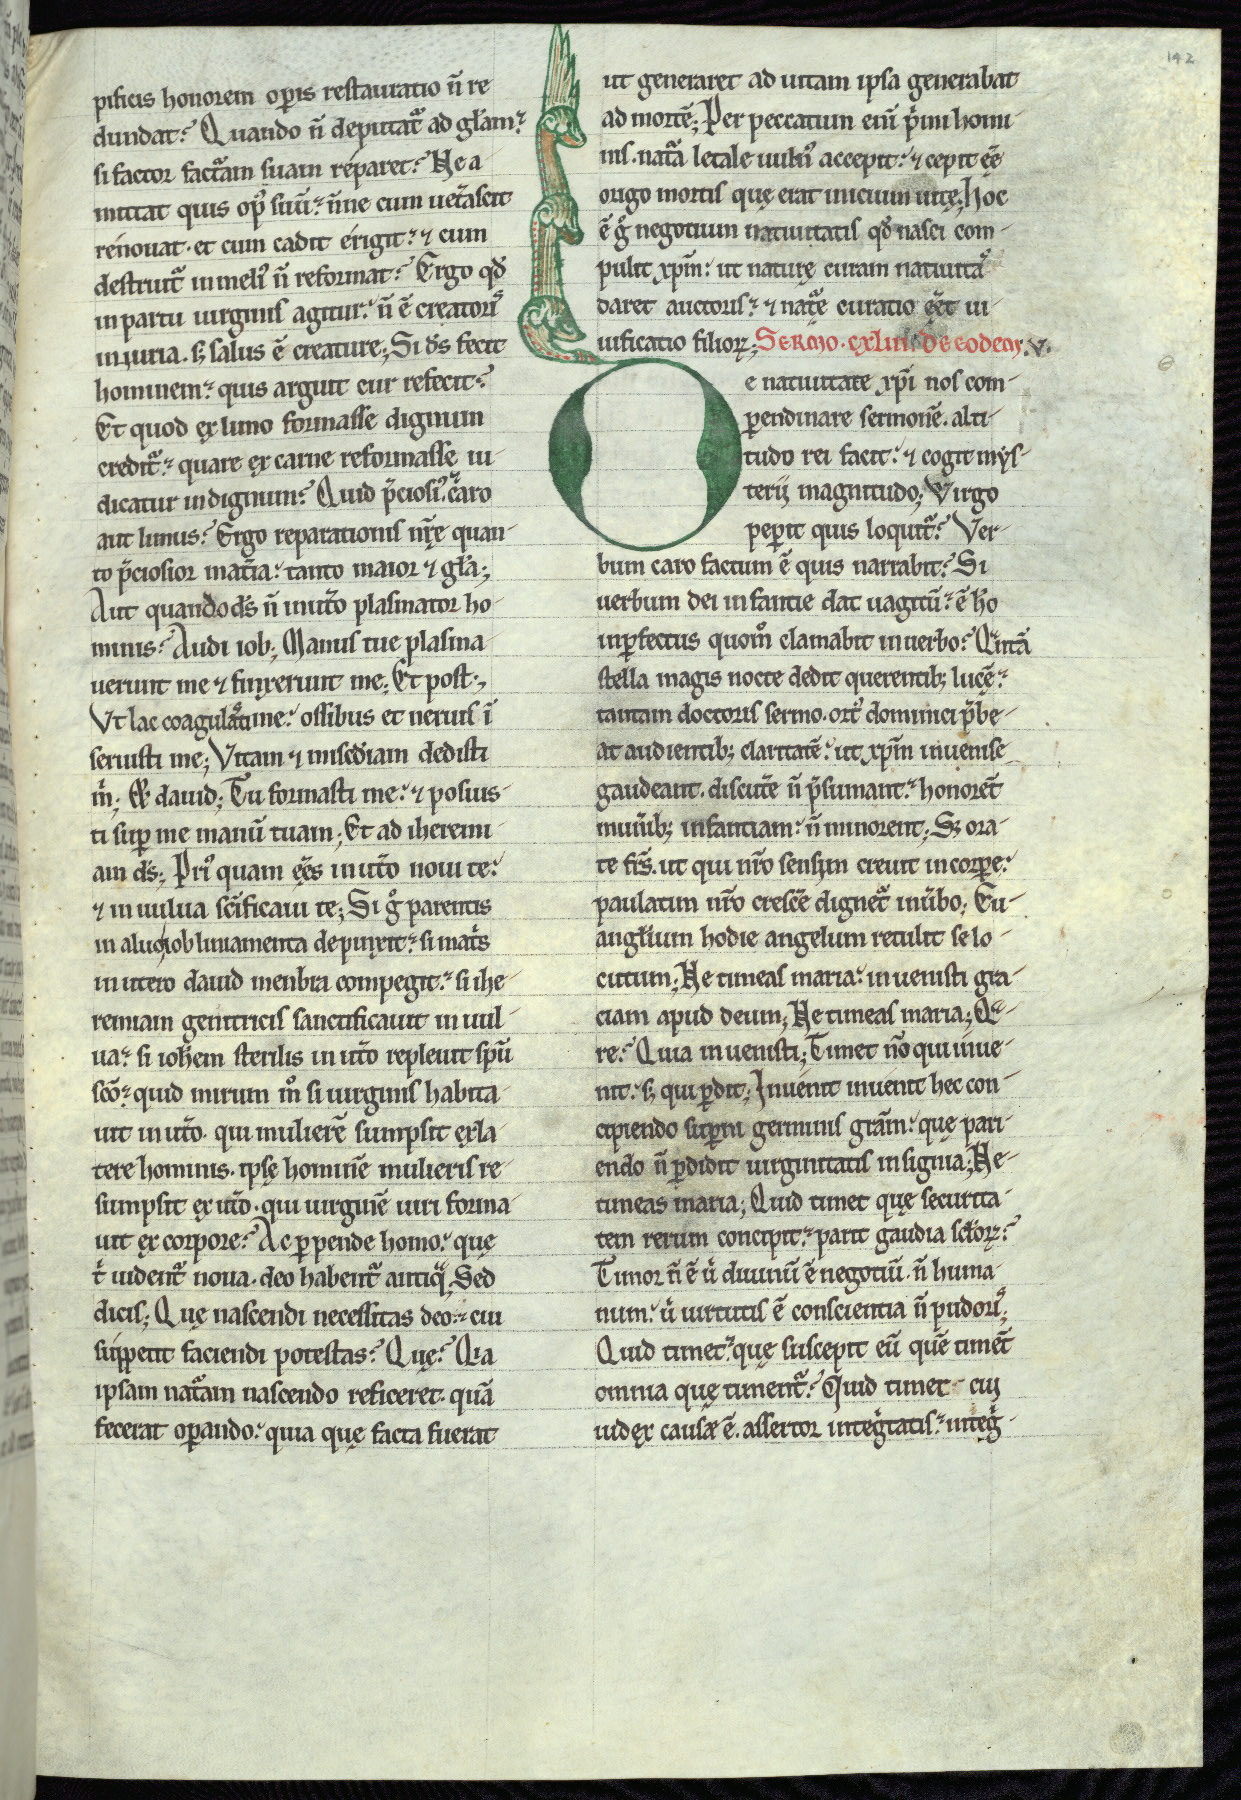 pificis honorem op̄is restauratio n̄ re
dundat? Quando n̄ deputat̄ ad gl̄am?
si factor fact̄am suam reparet? Ne a
mittat quis op̄ suū? n̄ne cum uet̄ascit
renouat. et cum cadit erigit? ⁊ cum
destruit̄ in meli᷒ n̄ reformat? Ergo qd̄
in partu uirginis agitur? n̄ ē creatoris
iniuria. sꝫ salus ē creature; Si ds̄ fecit
hominem? quis arguit cur refecit?
Et quod ex limo formasse dignum
credit̄? quare ex carne reformasse iu
dicatur indignum? Quid p̄ciosi᷒ caro
aut limus? Ergo reparationis nr̄ę quan-
to p̄ciosior mat̄ia? tanto maior ⁊ gl̄a;
Aut quando ds̄ n̄ in ut̄o plasmator ho-
minis? Audi iob; Manus tue plasma-
uerunt me ⁊ finxerunt me; Et post;
Vt lac coagulasti me? ossibus et neruis ī
seruisti me; Vitam ⁊ mis̄cdiam dedisti
m̄; Et dauid; Tu formasti me? ⁊ posuis-
ti suꝑ me manū tuam; Et ad iheremi-
am ds̄; Pri᷒ quam exires in ut̄o noui te?
⁊ in uulua sc̄ificaui te; Si g̊ parentis
in aluo iob liniamenta depinxit? si mat̄s
in utero dauid menbra compegit? si ihe-
remiam genitricis sanctificauit in uul-
ua? si ioh̄em sterilis in ut̄o repleuit sp̄u
sc̄o? quid mirum m̊ si uirginis habita-
uit in ut̄o. qui mulierē sumpsit ex la-
tere hominis. ipsę hominē mulieris re-
sumpsit ex ut̄o. qui uirginē uiri forma-
uit ex corpore? Ac ꝑpende homo? quę
t̄ uident̄ noua. deo habent̄ antiqua; Sed
dicis; Quę nascendi necessitas deo? cui
suppetit faciendi potestas? Quę? Quia
ipsam nat̄am nascendo reficeret. quā
fecerat oꝑando? quia quę facta fuerat
ut generaret ad uitam ipsa generabat
ad mortē; Per peccatum enī p̄mi homi-
nis. nat̄a letale uuln᷒ accepit? ⁊ cepit eē
origo mortis quę erat inicium uitę; hoc
ē g̊ negotium natiuitatis qd̄ nasci com-
pulit xp̄m? ut naturę curam natiuita᷒
daret auctoris? ⁊ nat̄ę curatio eēt ui-
uificatio filioꝝ; Sermo. cxluii. de eodem. V.
De natiuitate xp̄i nos com-
ꝑendinare sermonē. alti-
tudo rei facit? ⁊ cogit mys-
terij magnitudo; Virgo
peꝑit quis loquit̄? Ver-
bum caro factum ē quis narrabit? Si
uerbum dei infantie dat uagitū? ē h̄o
inꝑfectus quom̊ clamabit in uerbo? Quātā
stella magis nocte dedit querentibꝫ lucē?
tantam doctoris sermo. ort᷒ dominici p̄be-
at audientibꝫ claritatē? ut xp̄m inuenisse
gaudeant. discut̄e n̄ p̄sumant? honorēt
munibꝫ infantiam? n̄ minorent; Sꝫ ora-
te frs̄. ut qui nr̄o sensim creuit in corꝑe?
paulatim nr̄o crescē dignet̄ in ūbo; Eu-
angl̄ium hodie angelum retulit se lo-
cutum; Ne timeas maria? inuenisti gra-
ciam apud deum; Ne timeas maria; Qua-
re? Quia inuenisti; Timet n̊o qui inue-
nit? sꝫ qui ꝑdit; Inuenit inuenit hec con-
cipiendo suꝑni germinis grām? quę pari-
endo n̄ ꝑdidit uirginitatis insignia; Ne-
timeas maria; Quid timet quę securita-
tem rerum concipit? parit gaudia sc̄loꝝ?
Timor n̄ ē u̇ diuinū ē negotiū. n̄ huma-
num? u̇ uirtutis ē conscientia n̄ pudoris;
Quid timet? quę suscepit eū quē timēt
omnia quę timent̄? Quid timet cuj
iudex causæ ē. assertor integ̊tatis? integ̊-